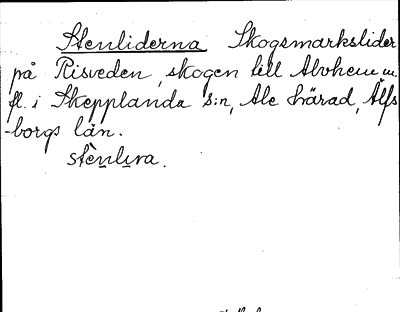 Stenliderna Skogsmarkslider
på Risveden, skogen till Alvhem m.
fl. i Skepplanda s:n, Ale härad, Älfs
-borgs län.
stènlıra.